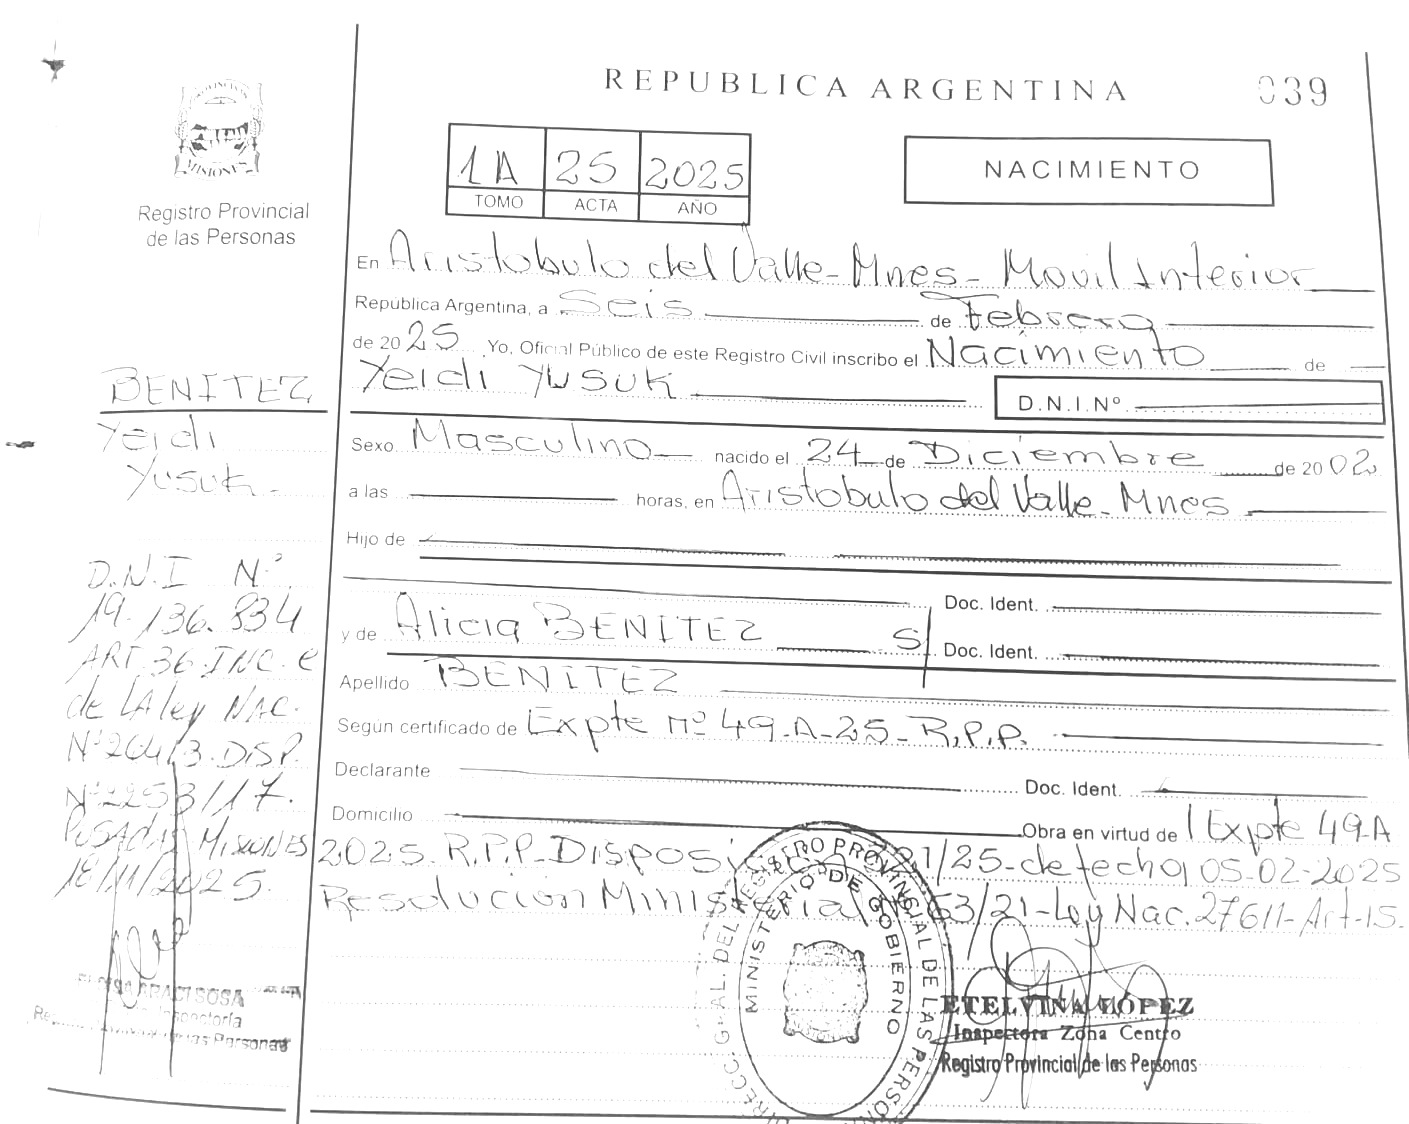 REPUBLICA ARGENTINA
039
MISIONES
Registro Provincial
de las Personas
1A 25 2025
TOMO ACTA AÑO
NACIMIENTO
En Aristobulo del Valle-Mnes-Movil Interior
Republica Argentina, a Seis de Febrero
de 2025 Yo, Oficial Público de este Registro Civil inscribo el Nacimiento de
Yeidi Yusuk
D.N.I.Nº
Sexo Masculino nacido el 24 de Diciembre de 2002
a las horas, en Aristobulo del Valle-Mnes
Hijo de
Doc. Ident.
y de Alicia BENITEZ S/
Doc. Ident.
Apellido BENITEZ
Según certificado de Expte nº 49-A-25-R.P.P.
Declarante Doc. Ident.
Domicilio Obra en virtud de Expte 49-A
2025-R.P.P-Disposición /25-de fecha 05-02-2025
Resolución Ministerial 63/21-Ley Nac. 27611-Art-15.
BENITEZ
Yeidi
Yusuk-
D.N.I Nº
19.136.834
ART.36.INC.e
de LA ley NAC.
Nº20413.DISP.
Nº2253/17.
POSADAS MISIONES
18/11/2025.
SOSA
Inspectoría
las Personas
DIRECC. GRAL. DEL REGISTRO PROVINCIAL DE LAS PERSON
MINISTERIO DE GOBIERNO
ETELVINA LÓPEZ
Inspectora Zona Centro
Registro Provincial de las Personas